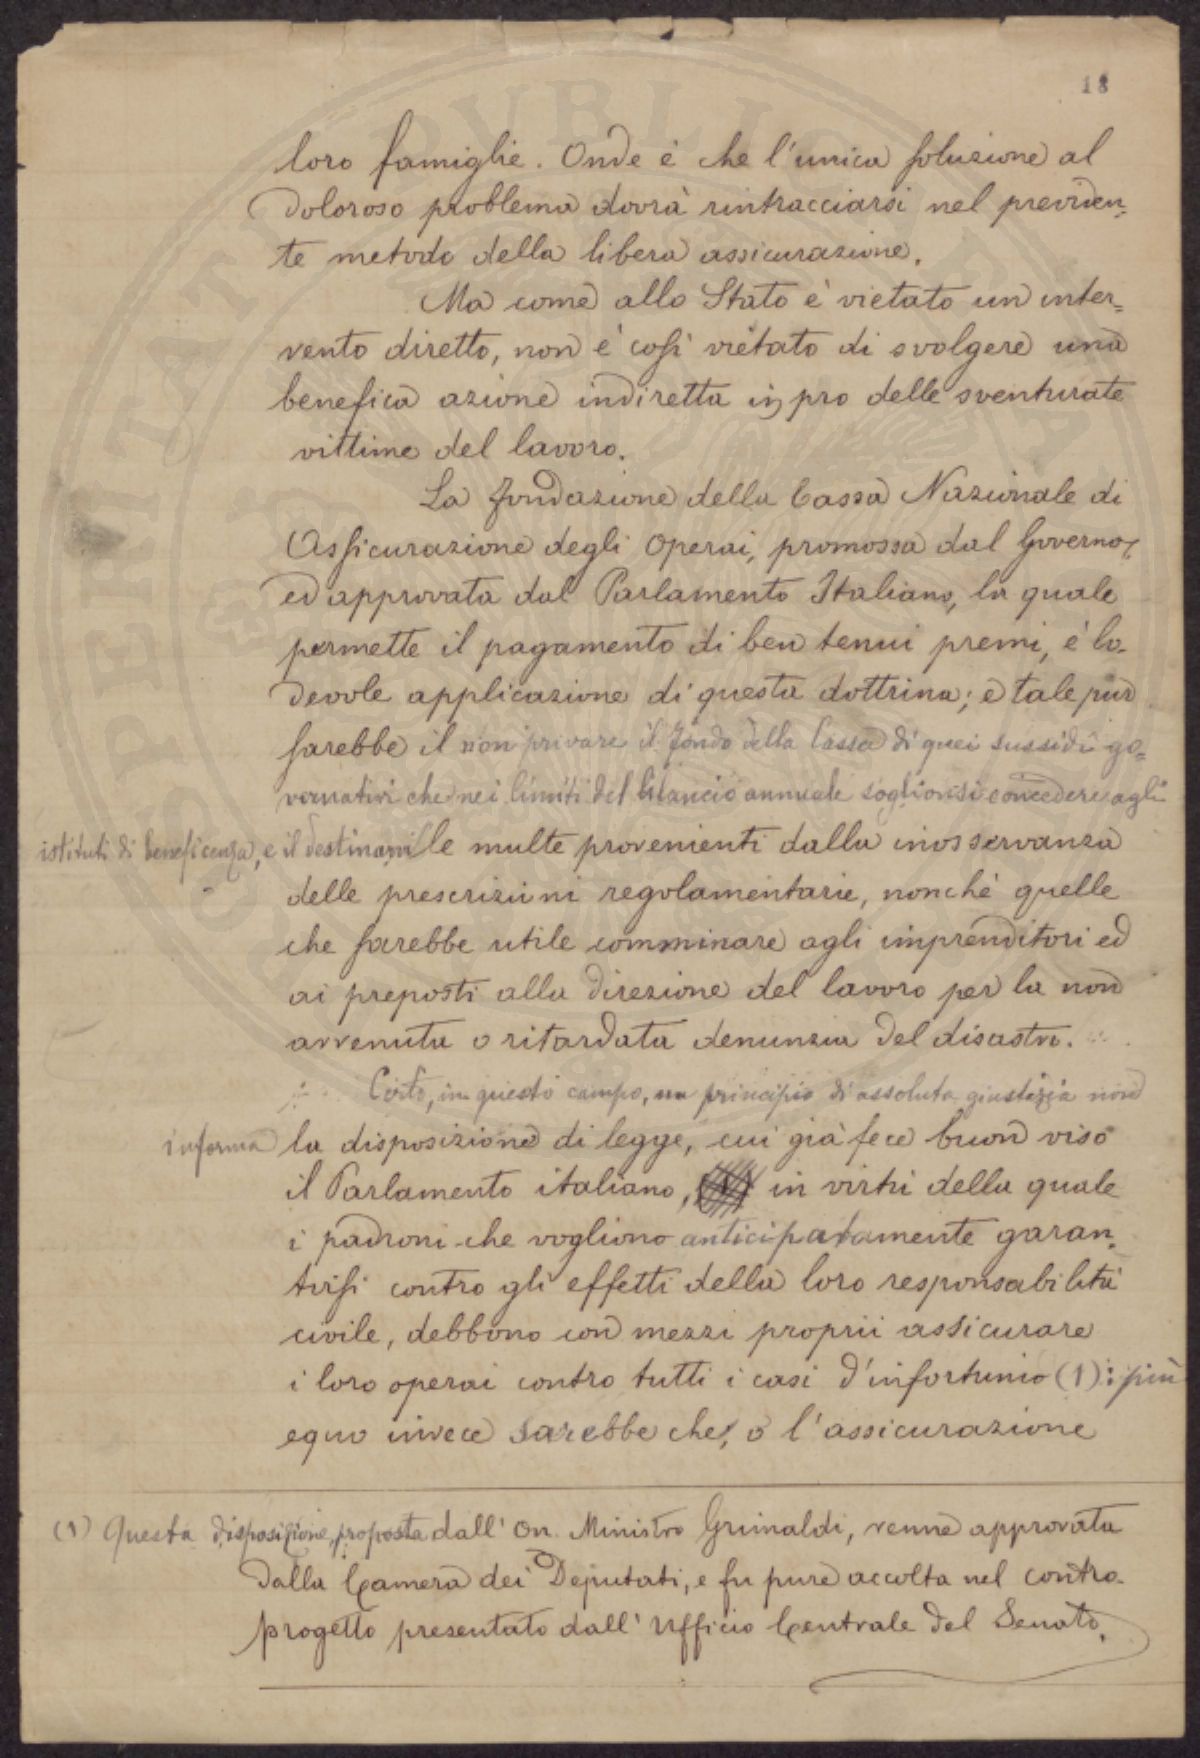 18
loro famiglie. Onde è che l'unica soluzione al
doloroso problema dovrà rintracciarsi nel previden-
te metodo della libera assicurazione.
Ma come allo Stato è vietato un inter-
vento diretto, non è così vietato di svolgere una
benefica azione indiretta in pro delle sventurate
vittime del lavoro.
La fondazione della Cassa Nazionale di
Assicurazione degli Operai, promossa dal Governo,
ed approvata dal Parlamento Italiano, la quale
permette il pagamento di ben tenui premi, è lo-
devole applicazione di questa dottrina; e tale pur
sarebbe il non privare il fondo della Cassa di quei sussidii go-
vernativi che nei limiti del bilancio annuale soglionsi concedere agli
istituti di beneficenza, e il destinarvi le multe provenienti dalla inosservanza
delle prescrizioni regolamentarie, nonchè quelle
che sarebbe utile comminare agli imprenditori ed
ai preposti alla direzione del lavoro per la non
avvenuta o ritardata denunzia del disastro.
Certo, in questo campo, un principio di assoluta giustizia non
informa la disposizione di legge, cui già fece buon viso
il Parlamento italiano, in virtù della quale
i padroni che vogliono anticipatamente garan-
tirsi contro gli effetti della loro responsabilità
civile, debbono con mezzi proprii assicurare
i loro operai contro tutti i casi d'infortunio (1): più
equo invece sarebbe che, o l'assicurazione
(1) Questa disposizione, proposta dall' On. Ministro Grimaldi, venne approvata
dalla Camera dei Deputati, e fu pure accolta nel contro-
progetto presentato dall' Ufficio Centrale del Senato.